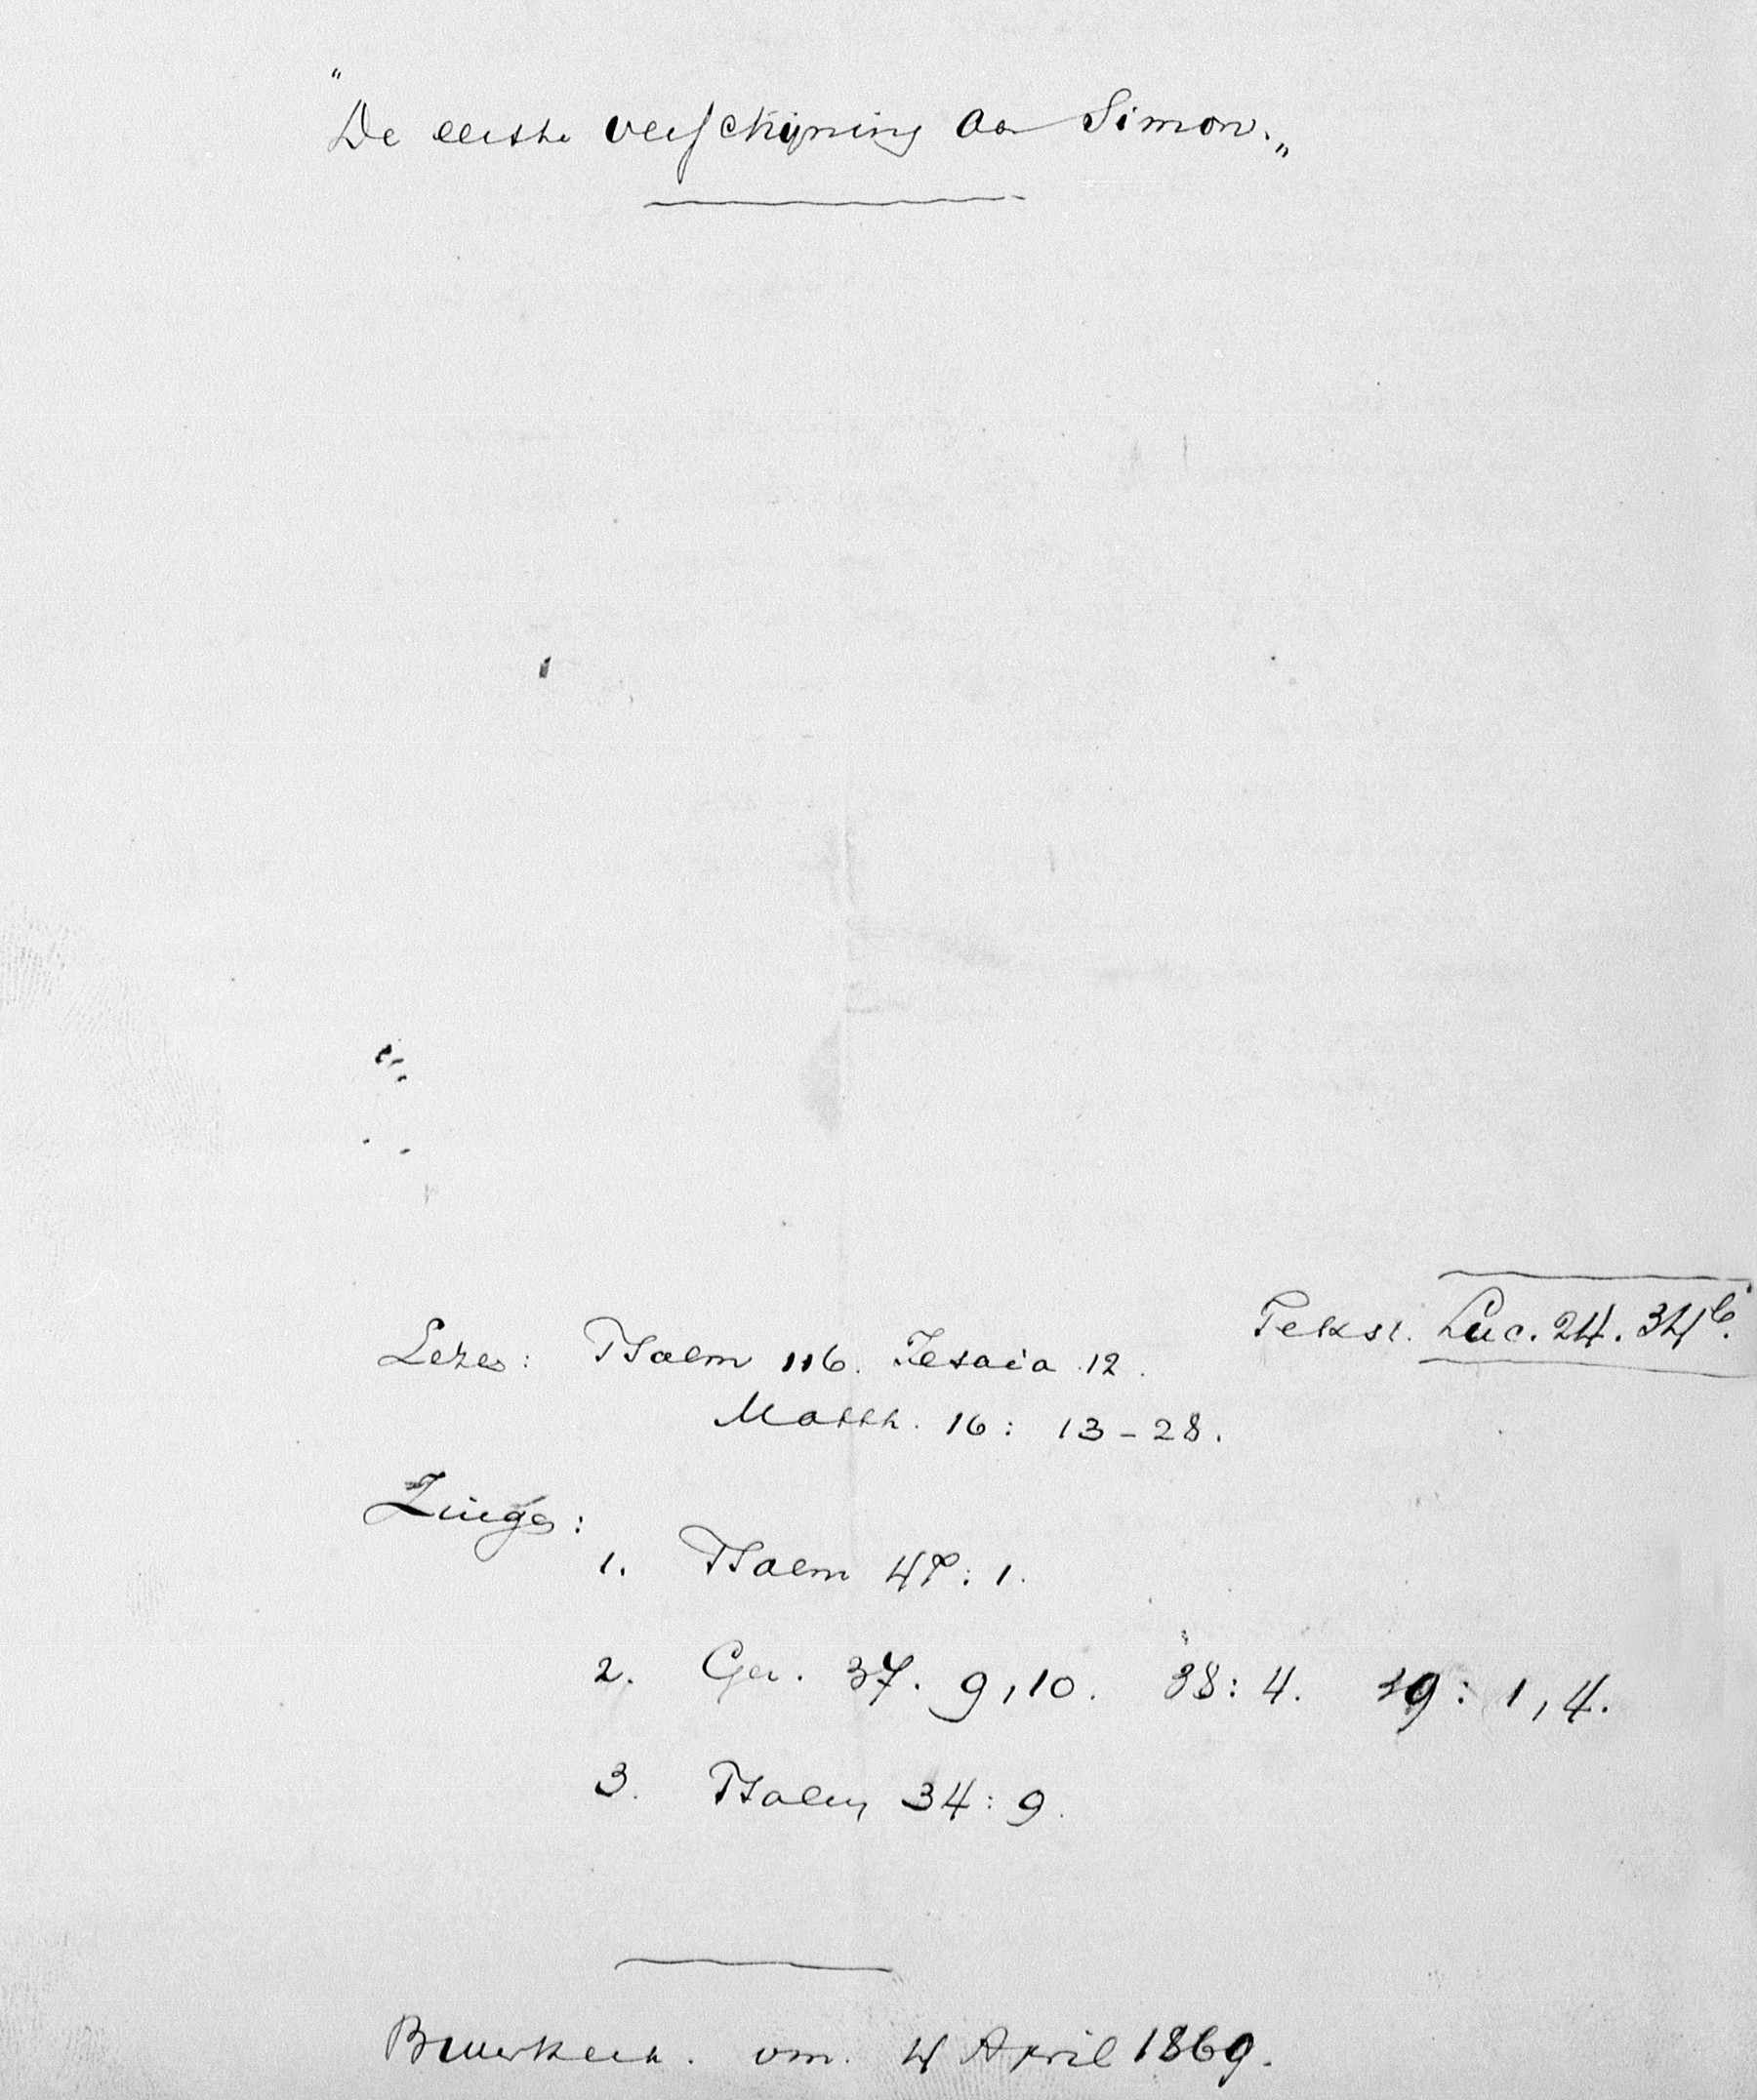 "De eerste verschijning aan Simon."
Tekst. Luc. 24. 34b.
Lezen: Psalm 116. Jesaia 12.
Matth. 16: 13-28.
Zingen:
1. Psalm 47: 1.
2. Gez. 37. 9,10. 38: 4. 39: 1, 4.
3. Psalm 34: 9.
Buurkerk. vm. 4 April 1869.